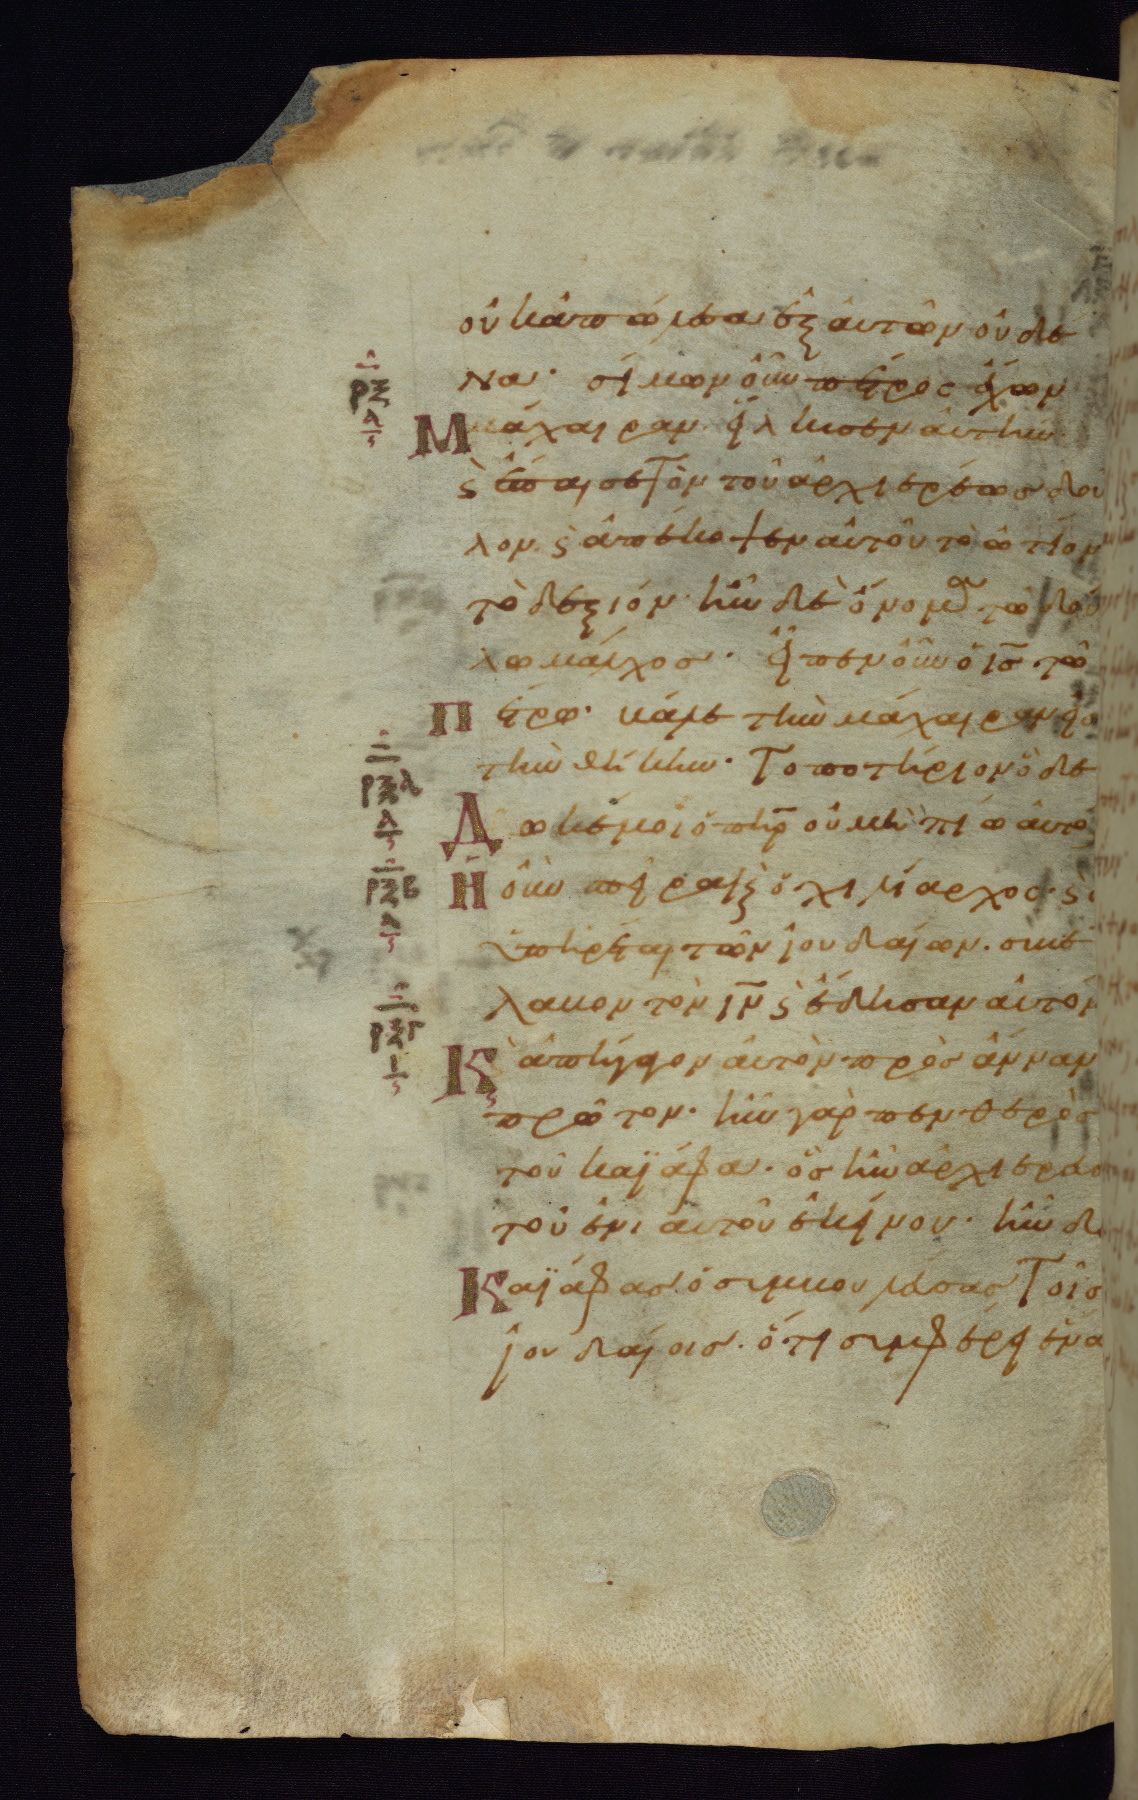 οὐκ ἀπώλεσα ἐξ αὐτῶν οὐδέ
να· σίμων οὖν πέτρος ἔχων
μάχαιραν· εἵλκησεν αὐτὴν·
ϛ ἔπαισε τὸν τοῦ ἀρχιερέως δοῦ
λον. ϛ ἀπέκοψεν αὐτοῦ τὸ ὠτίον
τὸ δεξιόν· ἦν δὲ ὄνομα τῶ δού
λω μάλχος· εἶπεν οὖν ὁ ις τῶ
Πέτρω· βάλε τὴν μάχαιραν εἰς
τὴν θήκην· Τὸ ποτήριον ὃ δέ
Δωκέ μοι ὁ πηρ οὐ μὴ πίω αὐτό
Ἡ οὖν σπεῖρα ϛ ὁ χιλίαρχος· ϛ
ὑπηρέται τῶν ἰουδαίων. συνέ
λαβον τὸν ιν ϛ ἔδησαν αὐτόν
Κ ἀπήγαγον αὐτὸν πρὸς ἄνναν
πρῶτον· ἦν γὰρ πενθερὸς
τοῦ καϊάφα· ὃς ἦν ἀρχιερεὺς
τοῦ ἐνιαυτοῦ ἐκείνου· ἦν δὲ
Καϊάφας ὁ συμβουλεύσας Τοῖς
ἰουδαίοις· ὅτι συμφέρει ἕνα
ρξ
α
ρξα
α
ρξβ
α
ρξγ
ι